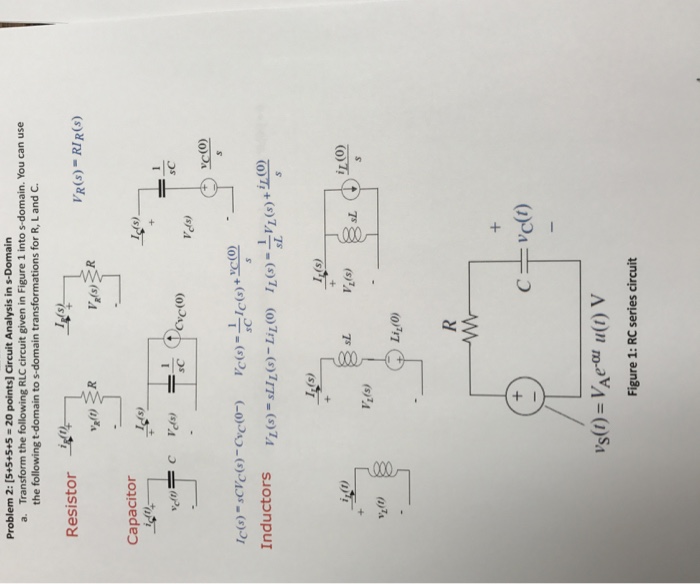 Problem 2: [5+5+5+5 = 20 points] Circuit Analysis in s-Domain
a. Transform the following RLC circuit given in Figure 1 into s-domain. You can use
the following t-domain to s-domain transformations for R, L and C.
Resistor
i_R(t)
+
v_R(t)
R
-
I_R(s)
+
V_R(s)
R
-
V_R(s) = RI_R(s)
Capacitor
i_C(t)
+
v_C(t)
C
-
I_C(s)
+
V_C(s)
1/sC
Cv_C(0)
-
I_C(s)
+
V_C(s)
1/sC
+
v_C(0)/s
-
I_C(s) = sCV_C(s) - Cv_C(0-) V_C(s) = 1/sC I_C(s) + v_C(0)/s
Inductors
V_L(s) = sLI_L(s) - Li_L(0) I_L(s) = 1/sL V_L(s) + i_L(0)/s
i_L(t)
+
v_L(t)
-
I_L(s)
+
V_L(s)
sL
Li_L(0)
-
+
-
I_L(s)
+
V_L(s)
sL
i_L(0)/s
-
R
+
-
C
+
v_C(t)
-
v_S(t) = V_A e^-αt u(t) V
Figure 1: RC series circuit